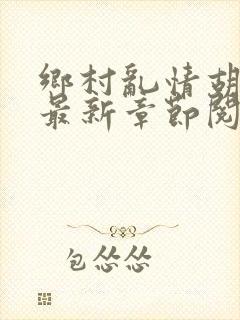 鄉村亂情胡
最新章節閱
包怂怂